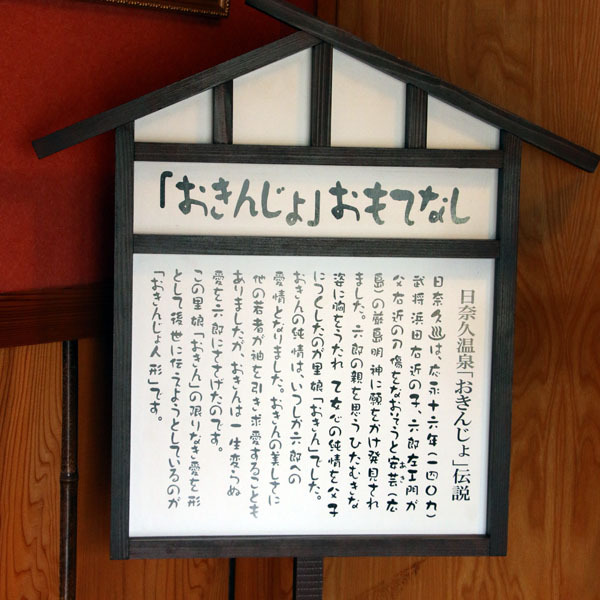 「おきんじょ」おもてなし
日奈久温泉「おきんじょ」伝説
日奈久巡は、応永十六年(一四〇九)
武将浜田右近の子、六郎左エ門が
父右近の刀傷をなおそうと安芸(広
あき
島)の厳島明神に願をかけ発見され
ました。六郎の親を思うひたむきな
姿に胸をうたれ乙女心の純情を父子
につくしたのが里娘「おきん」でした。
おきんの純情は、いつしか六郎への
愛情となりました。おきんの美しさに
他の若者が袖を引き求愛することも
ありましたが、おきんは一生変らぬ
愛を六郎にささげたのです。
この里娘「おきん」の限りなき愛を形
として後世に伝てようとしているのが
「おきんじょ人形」です。